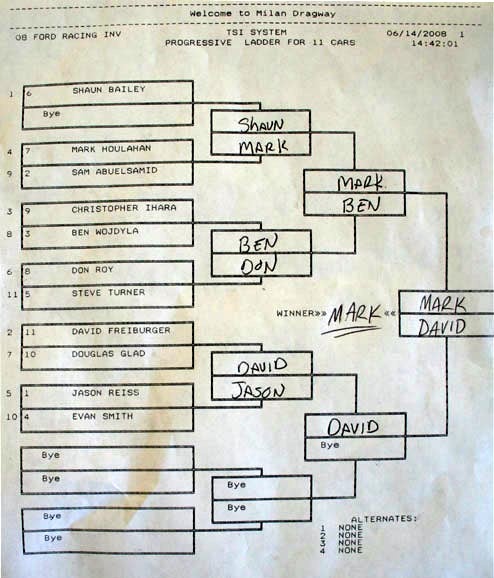 Welcome to Milan Dragway
08 FORD RACING INV TSI SYSTEM 06/14/2008 1
PROGRESSIVE LADDER FOR 11 CARS 14:42:01
1 6 SHAUN BAILEY
Bye
SHAUN
MARK
4 7 MARK HOULAHAN
9 2 SAM ABUELSAMID
MARK
BEN
3 9 CHRISTOPHER IHARA
8 3 BEN WOJDYLA
BEN
DON
6 8 DON ROY
11 5 STEVE TURNER
WINNER»» MARK ««
MARK
DAVID
2 11 DAVID FREIBURGER
7 10 DOUGLAS GLAD
DAVID
JASON
5 1 JASON REISS
10 4 EVAN SMITH
DAVID
Bye
Bye
Bye
Bye
Bye
Bye
Bye
ALTERNATES:
1 NONE
2 NONE
3 NONE
4 NONE